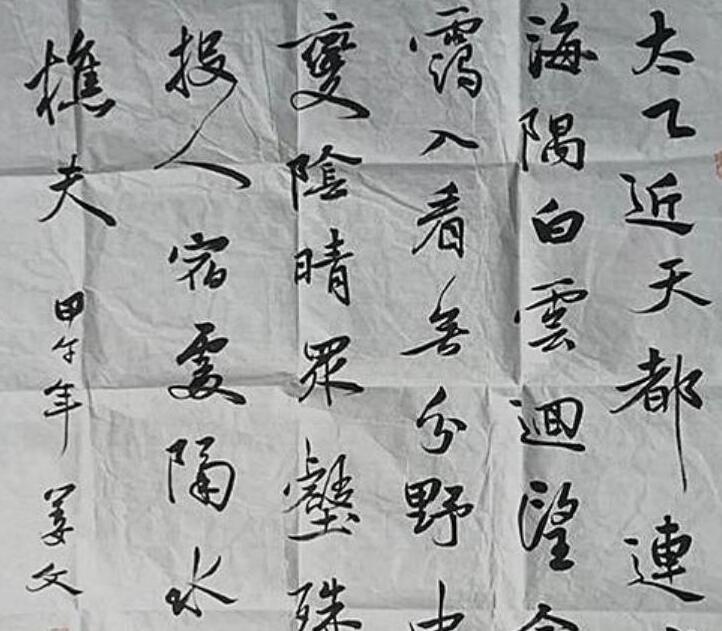 太乙近天都連
海隅白雲迴望合
靄入看無分野中
變陰晴眾壑殊
投人宿處隔水
樵夫
甲午年 姜文